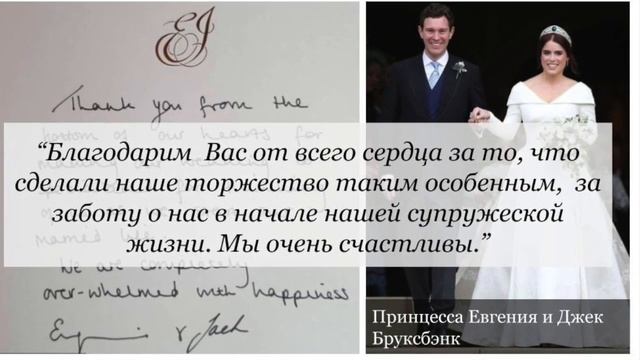 EJ
Thank you from the
bottom of our hearts for
“Благодарим Вас от всего сердца за то, что
сделали наше торжество таким особенным, за
заботу о нас в начале нашей супружеской
жизни. Мы очень счастливы.”
We are completely
over-whelmed with happiness
Eugenie & Jack
Принцесса Евгения и Джек
Бруксбэнк